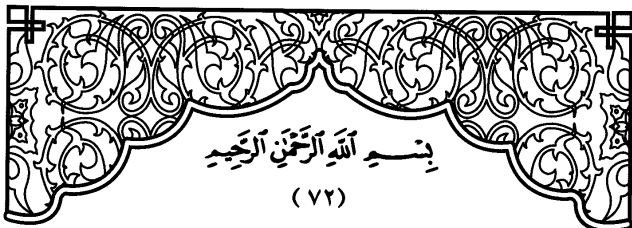 بِسْمِ ٱللَّهِ ٱلرَّحْمَٰنِ ٱلرَّحِيمِ
(٧٢)